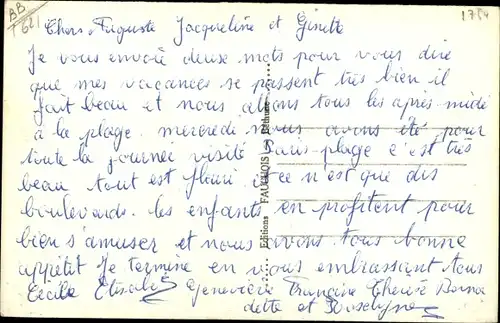 AB
T621
1754
Chers Auguste Jacqueline et Ginette
Je vous envoie deux mots pour vous dire
que mes vacances se passent très bien il
fait beau et nous allons tous les après-midi
à la plage. mercredi nous avons été pour
toute la journée visité Paris-plage c'est très
beau tout est fleuri et ce n'est que des
boulevards. les enfants en profitent pour
bien s'amuser et nous avons tous bonne
appétit Je termine en vous embrassant tous
Cécile Elisabeth Geneviève Francine Thérèse Berna
dette et Roselyne
Editions FAUCHOIS